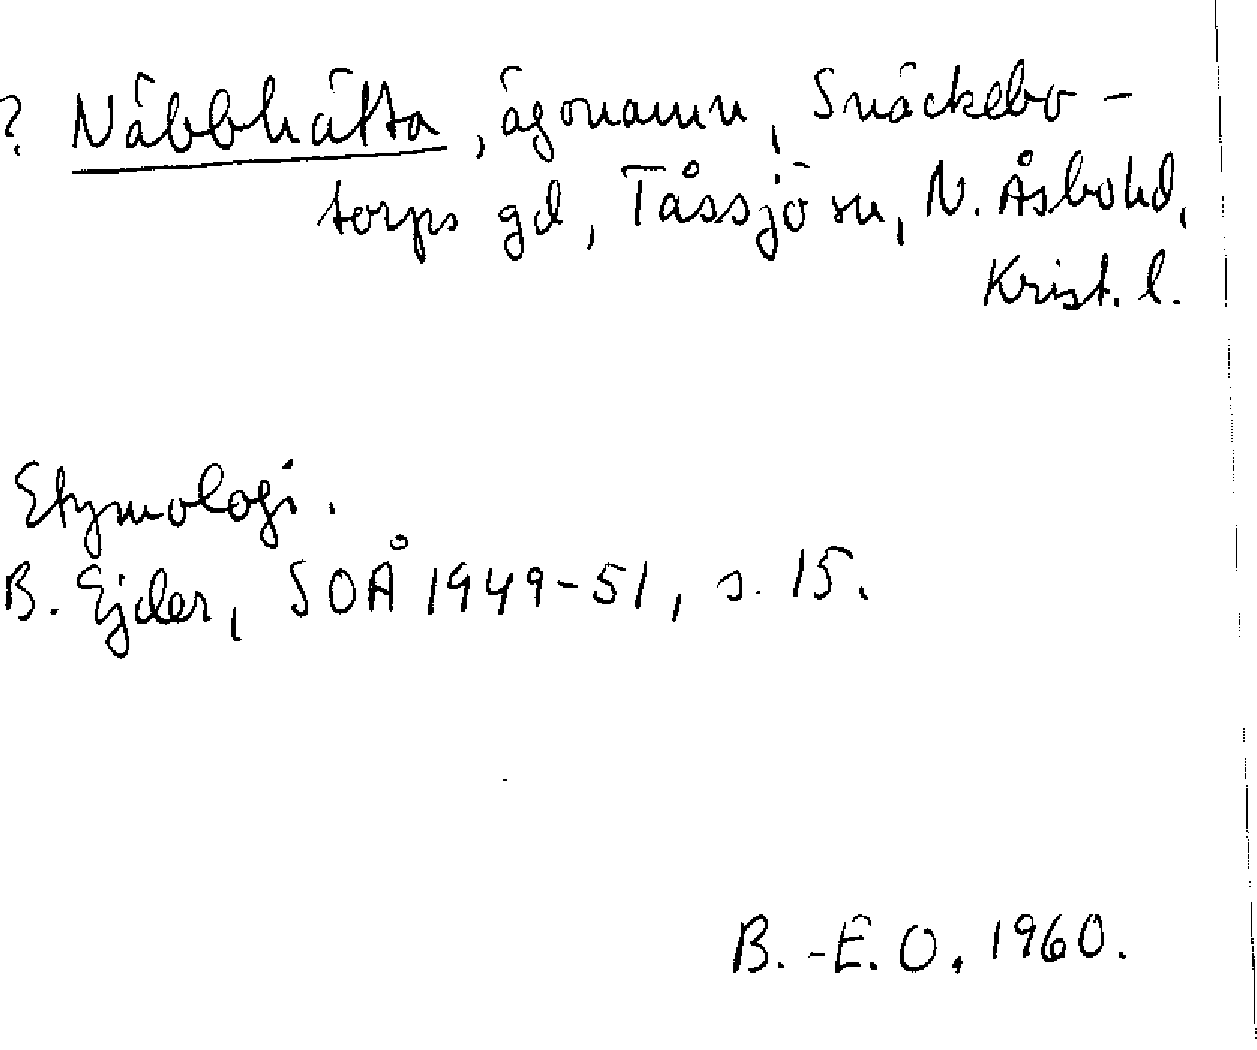 ? Näbbhätta, ägonamn, Snäckebo-
torps gd, Tåssjö sn, N. Åsbo hd,
Krist. l.
Etymologi.
B. Ejder, SOÅ 1949-51, s. 15.
B.-E. O. 1960.